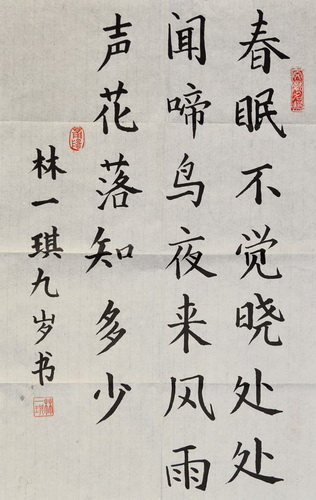 春眠不觉晓处处
闻啼鸟夜来风雨
声花落知多少
林一琪九岁书